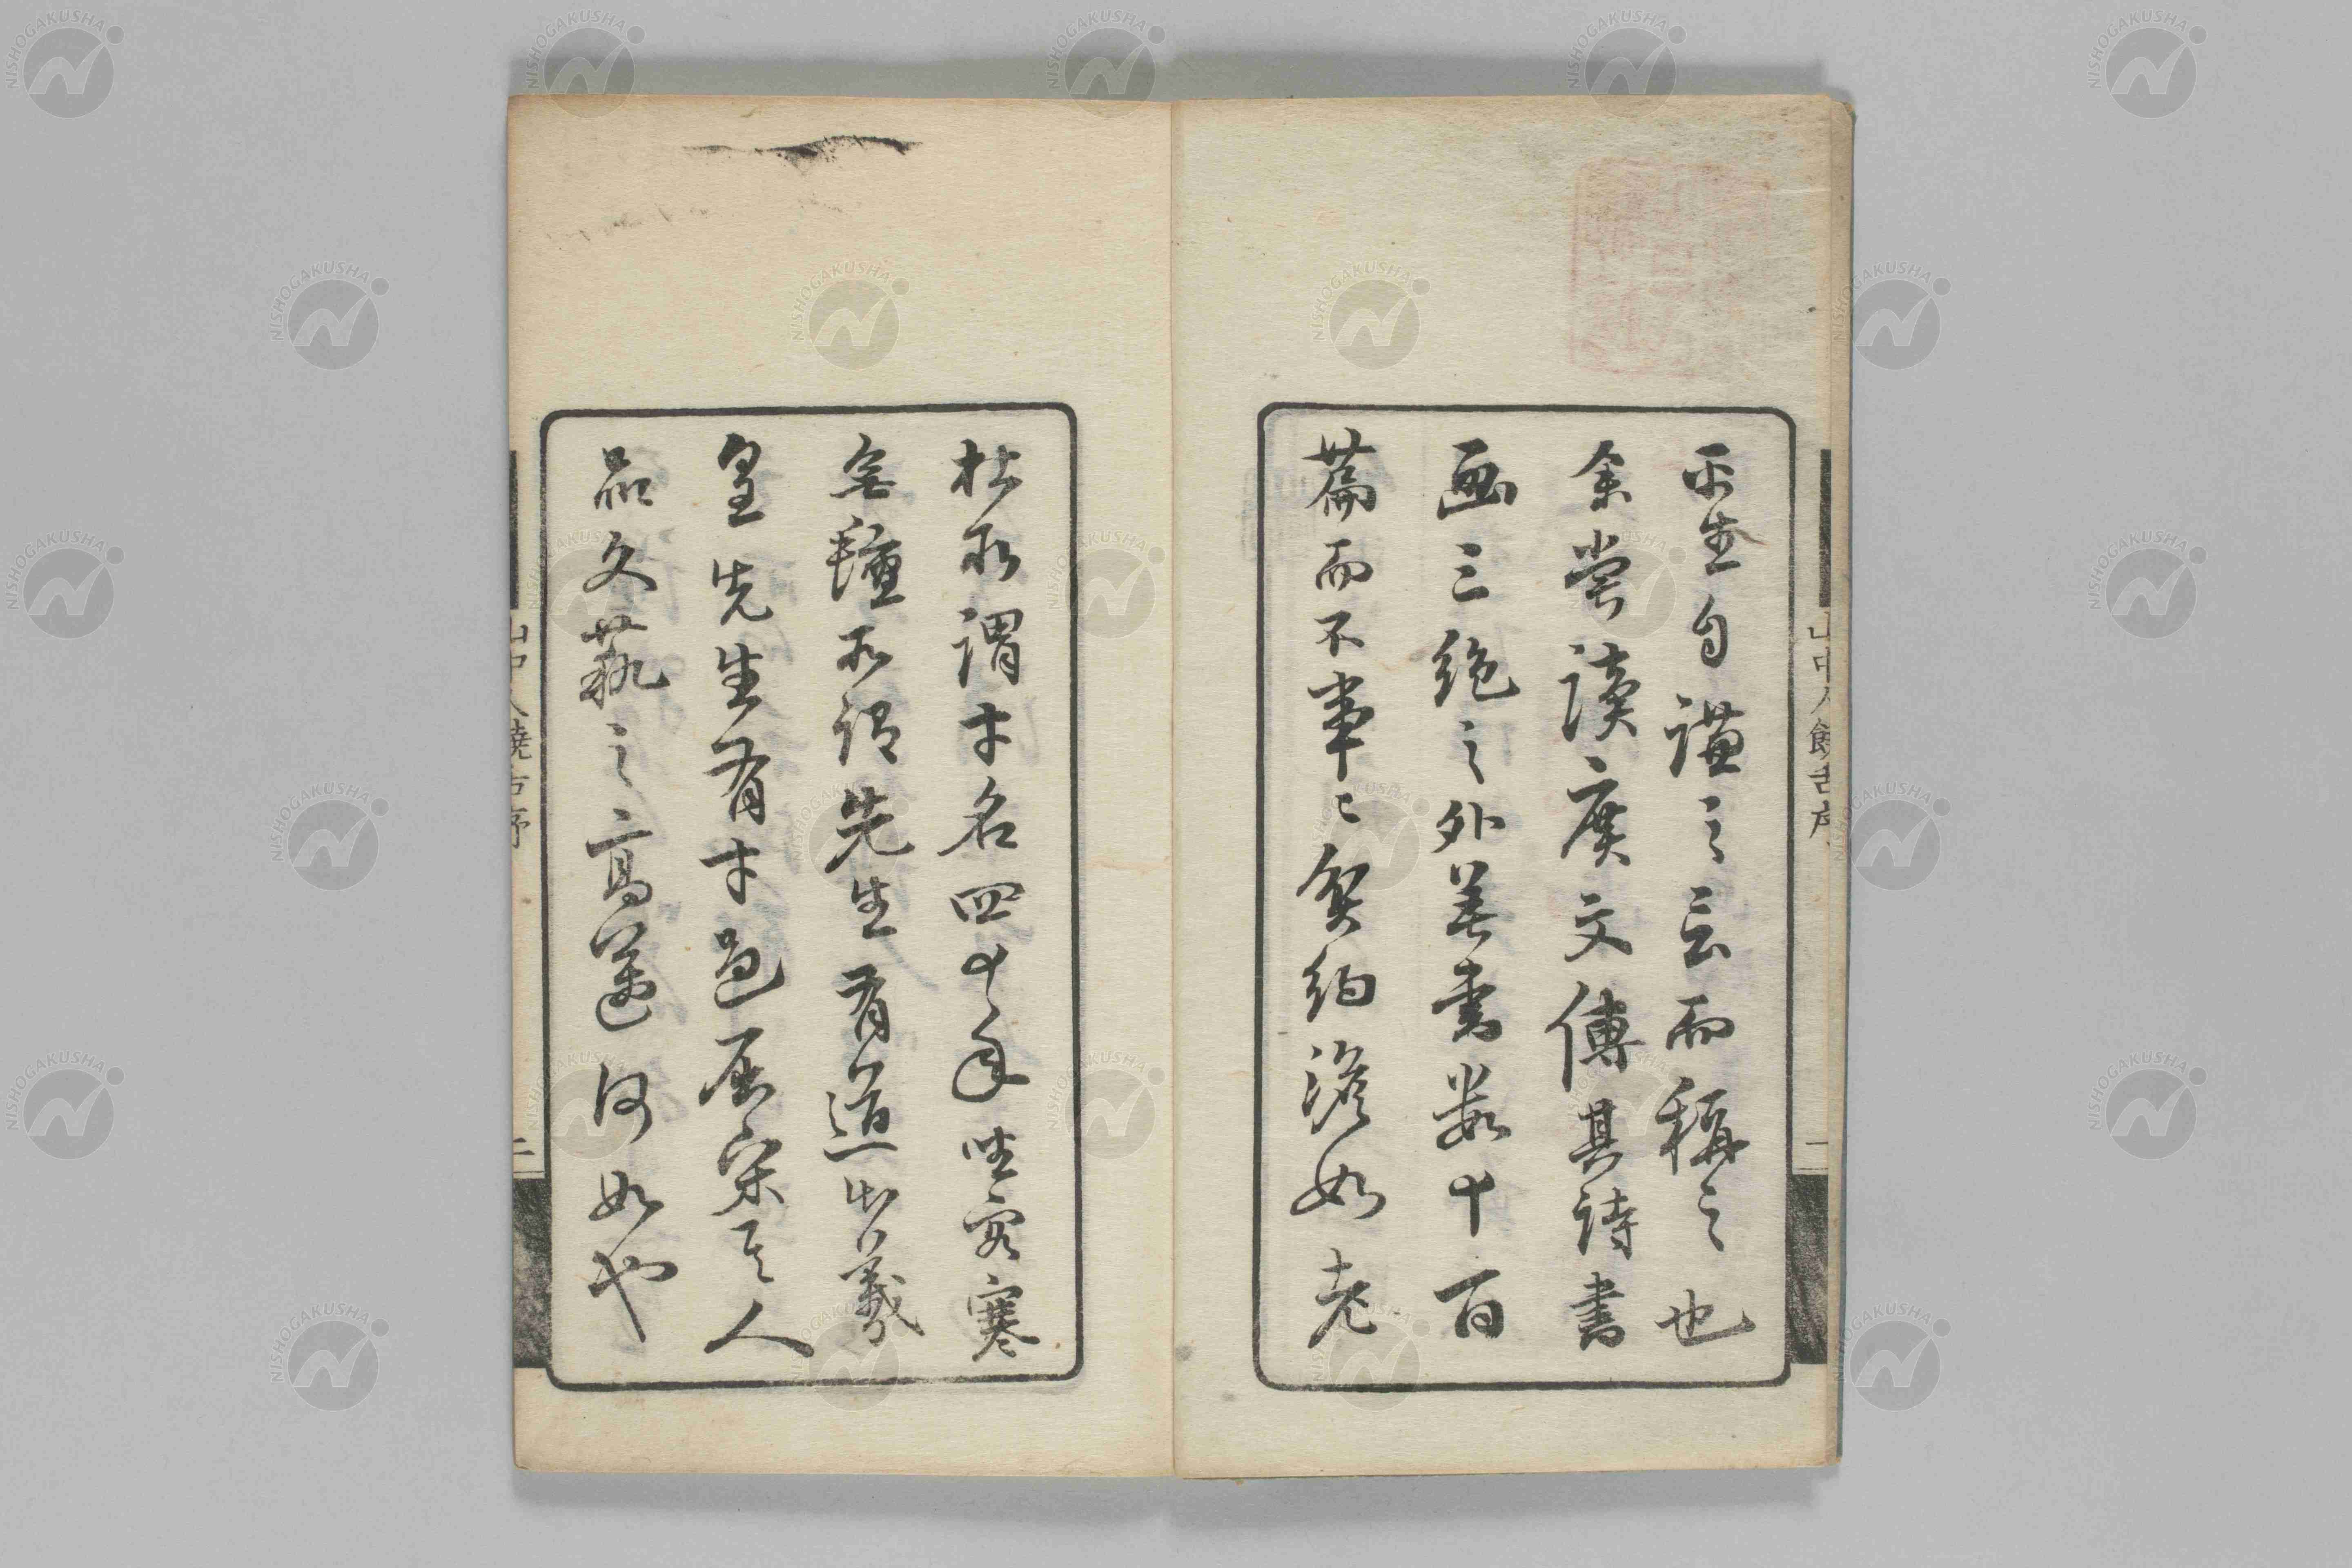 平生自謙之言而稱之也
余嘗讀廣文傳其詩書
画三絶之外著書数十百
篇而不事〻貧約澹如老
杜所謂才名四十年坐客寒
無氊所謂先生有道出羲
皇先生有才過屈宋其人
品文藝之高邁何如也
山中人饒舌序
一
山中人饒舌序
二